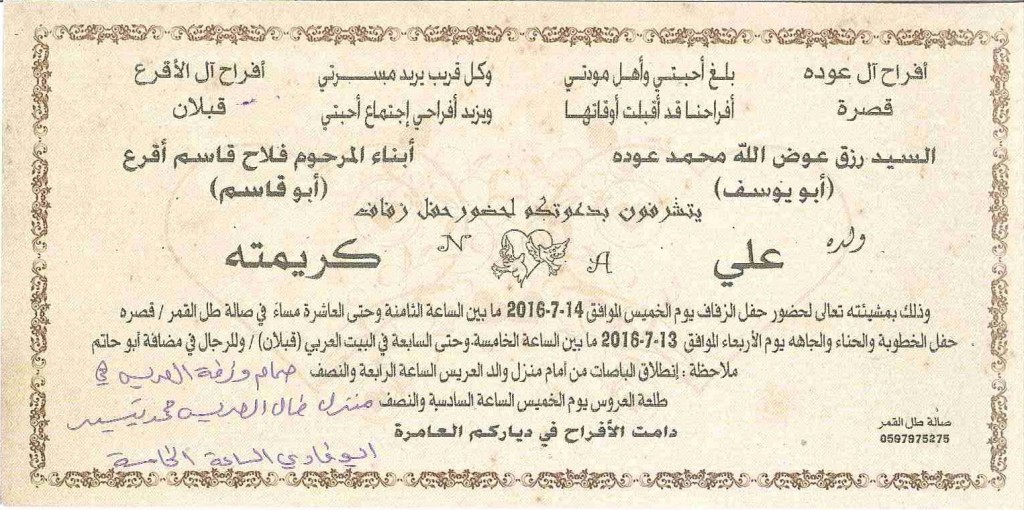 أفراح آل عوده    بلغ أحبتي وأهل مودتي    وكل قريب يريد مسرتي    أفراح آل الأقرع
قصرة    أفراحنا قد أقبلت أوقاتها    ويزيد أفراحي إجتماع أحبتي    قبلان
السيد رزق عوض الله محمد عوده    أبناء المرحوم فلاح قاسم أقرع
(أبو يوسف)    (أبو قاسم)
يتشرفون بدعوتكم لحضور حفل زفاف
ولده علي    A    N    كريمته
وذلك بمشيئته تعالى لحضور حفل الزفاف يوم الخميس الموافق 14-7-2016 ما بين الساعة الثامنة وحتى العاشرة مساءً في صالة طل القمر / قصره
حفل الخطوبة والحناء والجاهه يوم الأربعاء الموافق 13-7-2016 ما بين الساعة الخامسة وحتى السابعة في البيت العربي (قبلان) / وللرجال في مضافة أبو حاتم
ملاحظة : إنطلاق الباصات من أمام منزل والد العريس الساعة الرابعة والنصف
طلعة العروس يوم الخميس الساعة السادسة والنصف
دامت الأفراح في دياركم العامرة
حمام وزفة العريس في
منزل خال العريس محمد تيسير
ابو فادي الساعة الخامسة
صالة طل القمر
0597975275